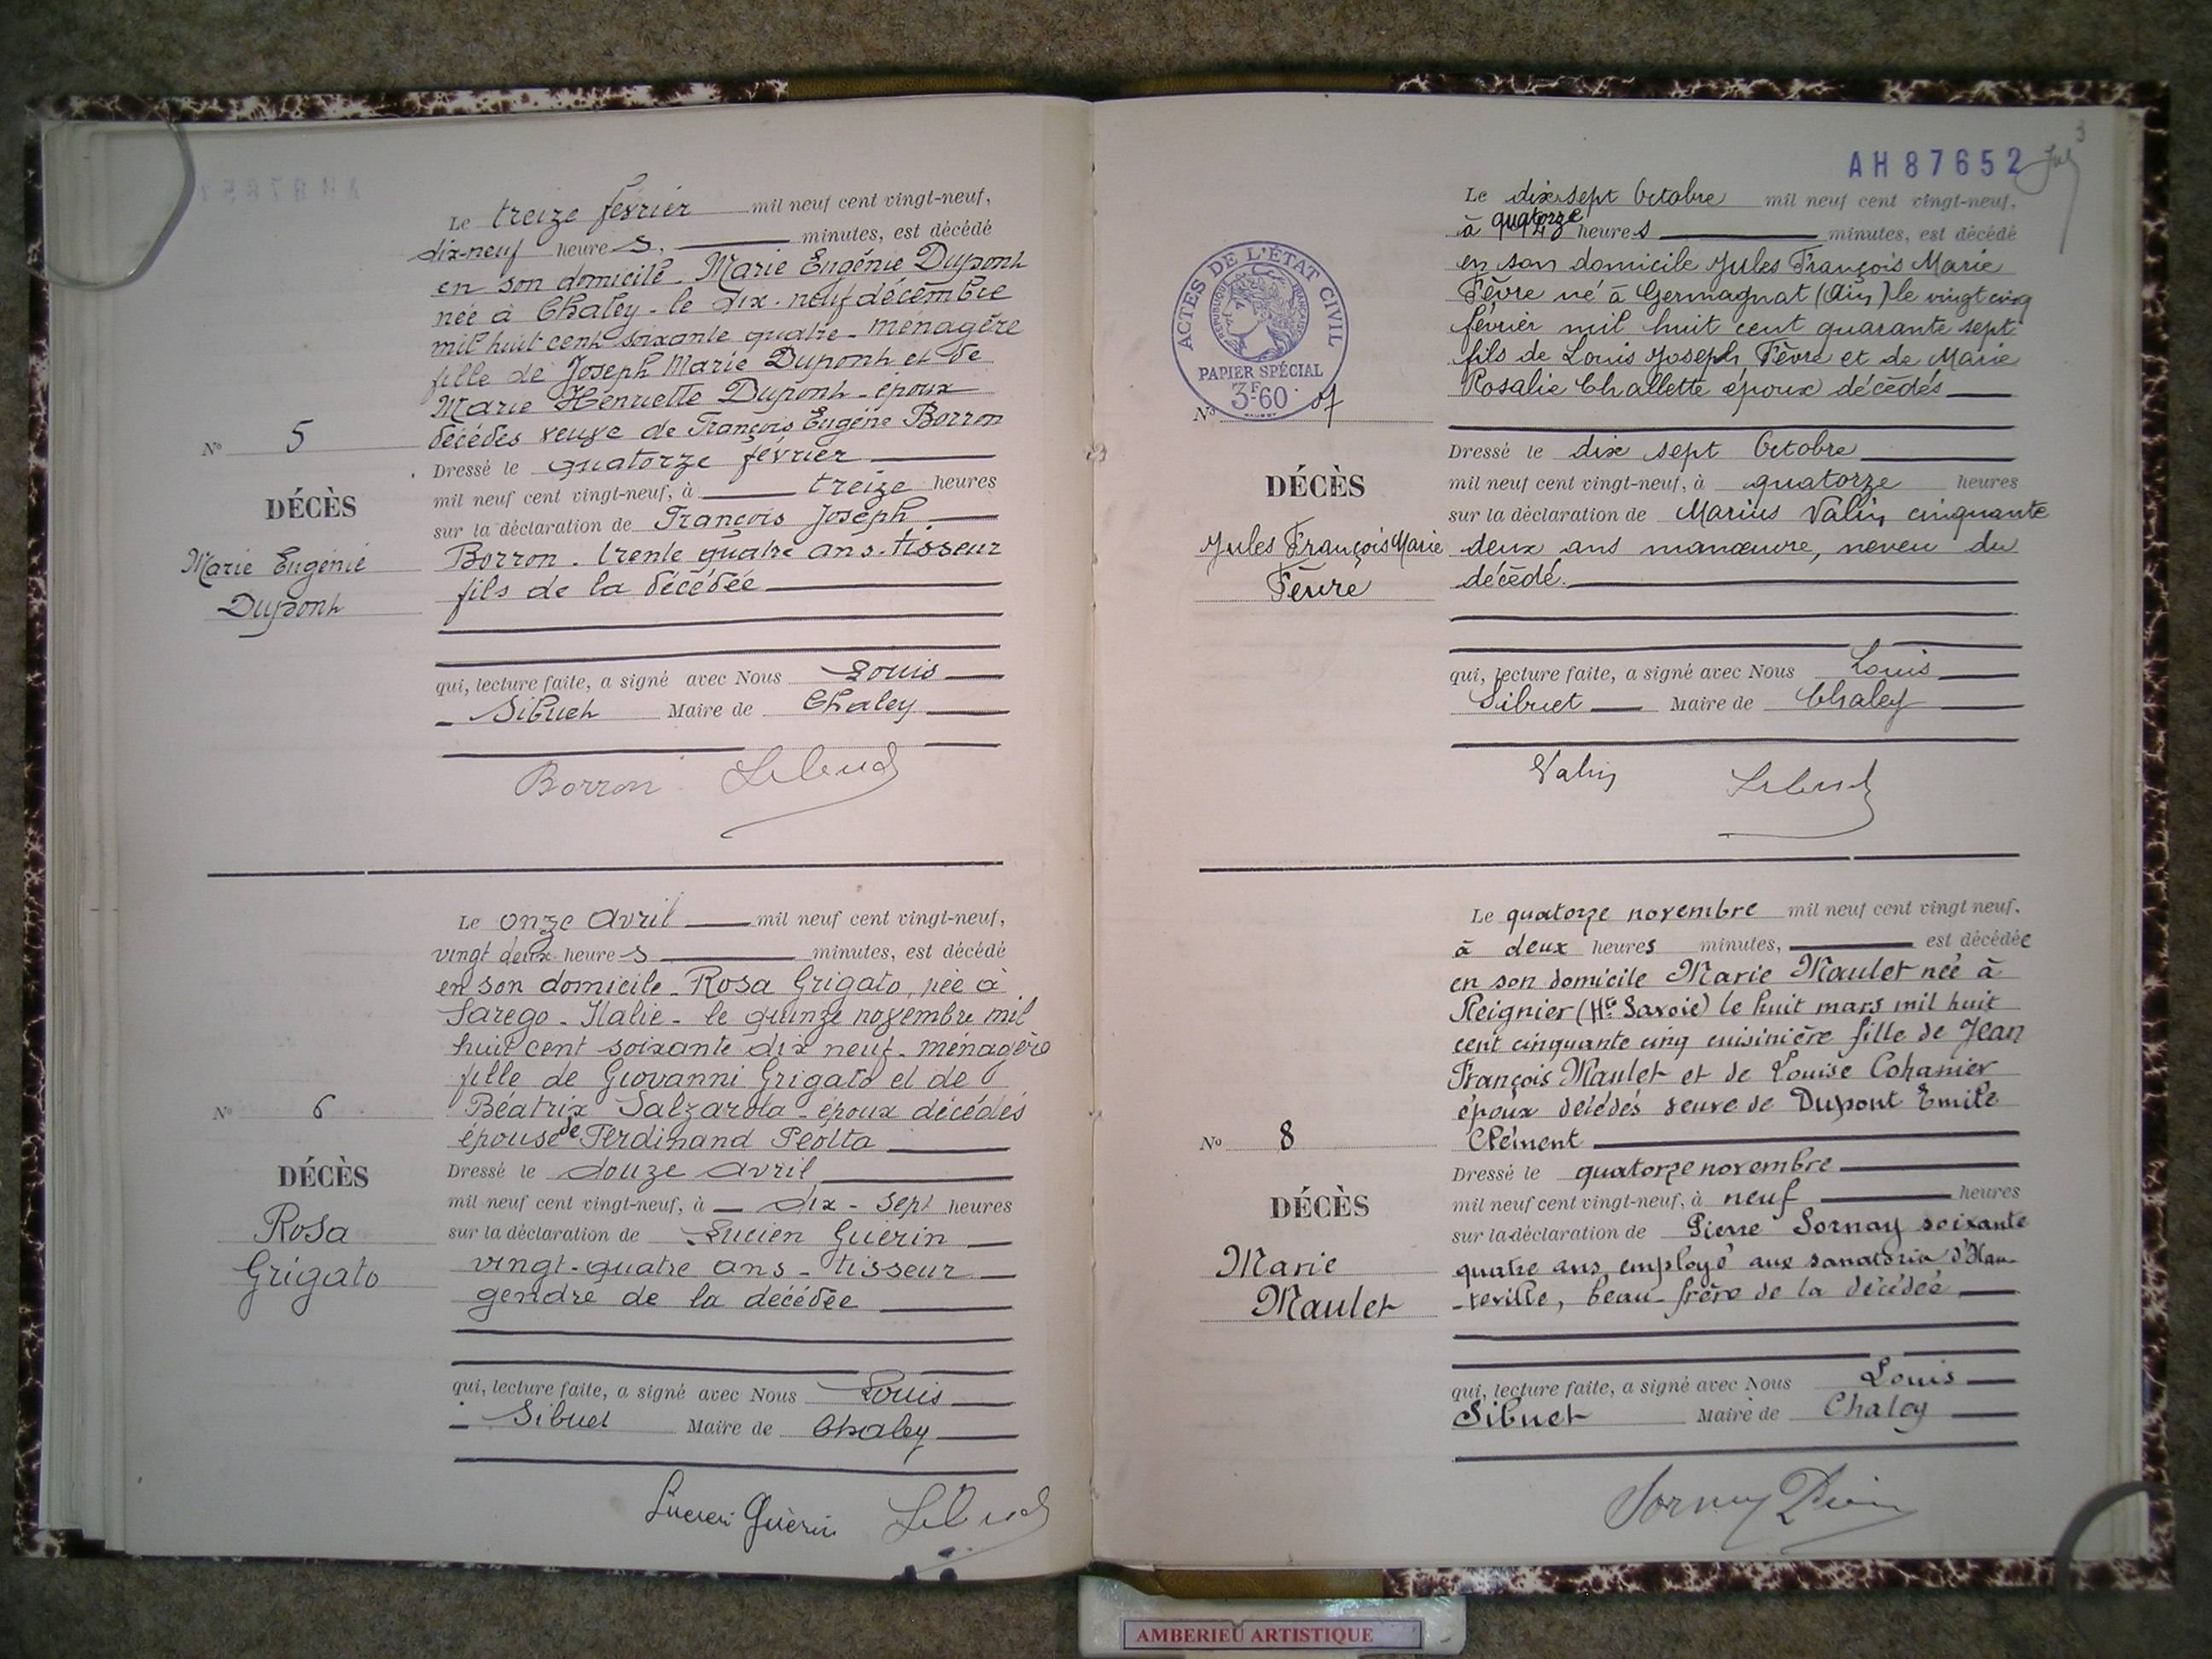 Le treize février mil neuf cent vingt-neuf,
dix-neuf heures, minutes, est décédé
en son domicile. Marie Eugénie Dupont
née à Chaley - le dix-neuf décembre
mil huit cent soixante quatre - ménagère
fille de Joseph Marie Dupont et de
Marie Henriette Dupont - époux
décédés veuve de François Eugène Borron
N° 5
Dressé le quatorze février
mil neuf cent vingt-neuf, à treize heures
DÉCÈS
sur la déclaration de François Joseph
Marie Eugénie
Borron. trente quatre ans. tisseur
Dupont
fils de la décédée
qui, lecture faite, a signé avec Nous Louis
Sibuet Maire de Chaley
Borron Sibuet
Le onze avril mil neuf cent vingt-neuf,
vingt deux heures minutes, est décédé
en son domicile - Rosa Grigato, née à
Sarego - Italie - le quinze novembre mil
huit cent soixante dix neuf - ménagère
fille de Giovanni Grigato et de
N° 6
Béatrix Salzarola - époux décédés
épouse de Ferdinand Peotta
Dressé le douze avril
DÉCÈS
mil neuf cent vingt-neuf, à dix-sept heures
Rosa
sur la déclaration de Lucien Guérin
Grigato
vingt-quatre ans - tisseur
gendre de la décédée
qui, lecture faite, a signé avec Nous Louis
Sibuet Maire de Chaley
Lucien Guérin Sibuet
3
AH87652
Le dix sept Octobre mil neuf cent vingt-neuf,
à quatorze heures minutes, est décédé
en son domicile Jules François Marie
Fèvre né à Germagnat (Ain) le vingt cinq
février mil huit cent quarante sept
fils de Louis Joseph Fèvre et de Marie
Rosalie Challette époux décédés
ACTES DE L'ÉTAT CIVIL
RÉPUBLIQUE FRANÇAISE
PAPIER SPÉCIAL
3F60
N° 7
Dressé le dix sept Octobre
DÉCÈS
mil neuf cent vingt-neuf, à quatorze heures
sur la déclaration de Marius Valin cinquante
Jules François Marie
deux ans manœuvre, neveu du
Fèvre
décédé.
qui, lecture faite, a signé avec Nous Louis
Sibuet Maire de Chaley
Valin Sibuet
Le quatorze novembre mil neuf cent vingt neuf.
à deux heures minutes, est décédée
en son domicile Marie Maulet née à
Reignier (Hte Savoie) le huit mars mil huit
cent cinquante cinq cuisinière fille de Jean
François Maulet et de Louise Cohanier
époux décédés veuve de Dupont Emile
N° 8
Clément
Dressé le quatorze novembre
DÉCÈS
mil neuf cent vingt-neuf, à neuf heures
sur la déclaration de Pierre Sornay soixante
Marie
quatre ans, employé aux sanatoria d'Hau-
Maulet
-teville, beau-frère de la décédée
qui, lecture faite, a signé avec Nous Louis
Sibuet Maire de Chaley
Sornay Pierre
AMBERIEU ARTISTIQUE